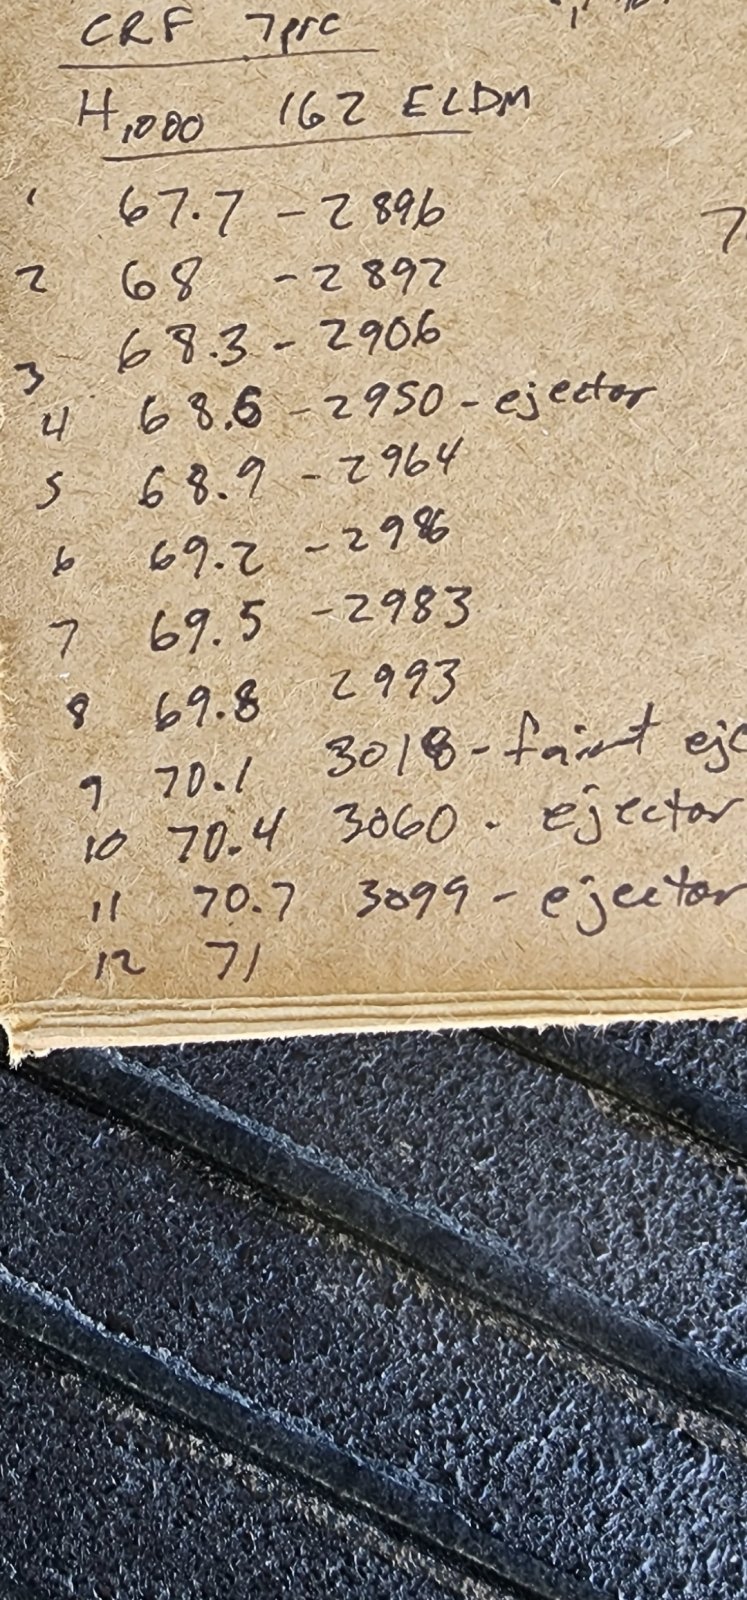 CRF 7prc
H1000 162 ELDM
1 67.7 - 2896
2 68 - 2892
3 68.3 - 2906
4 68.6 - 2950 - ejector
5 68.9 - 2964
6 69.2 - 2986
7 69.5 - 2983
8 69.8 2993
9 70.1 3018 - faint eje
10 70.4 3060 - ejector
11 70.7 3099 - ejector
12 71
7